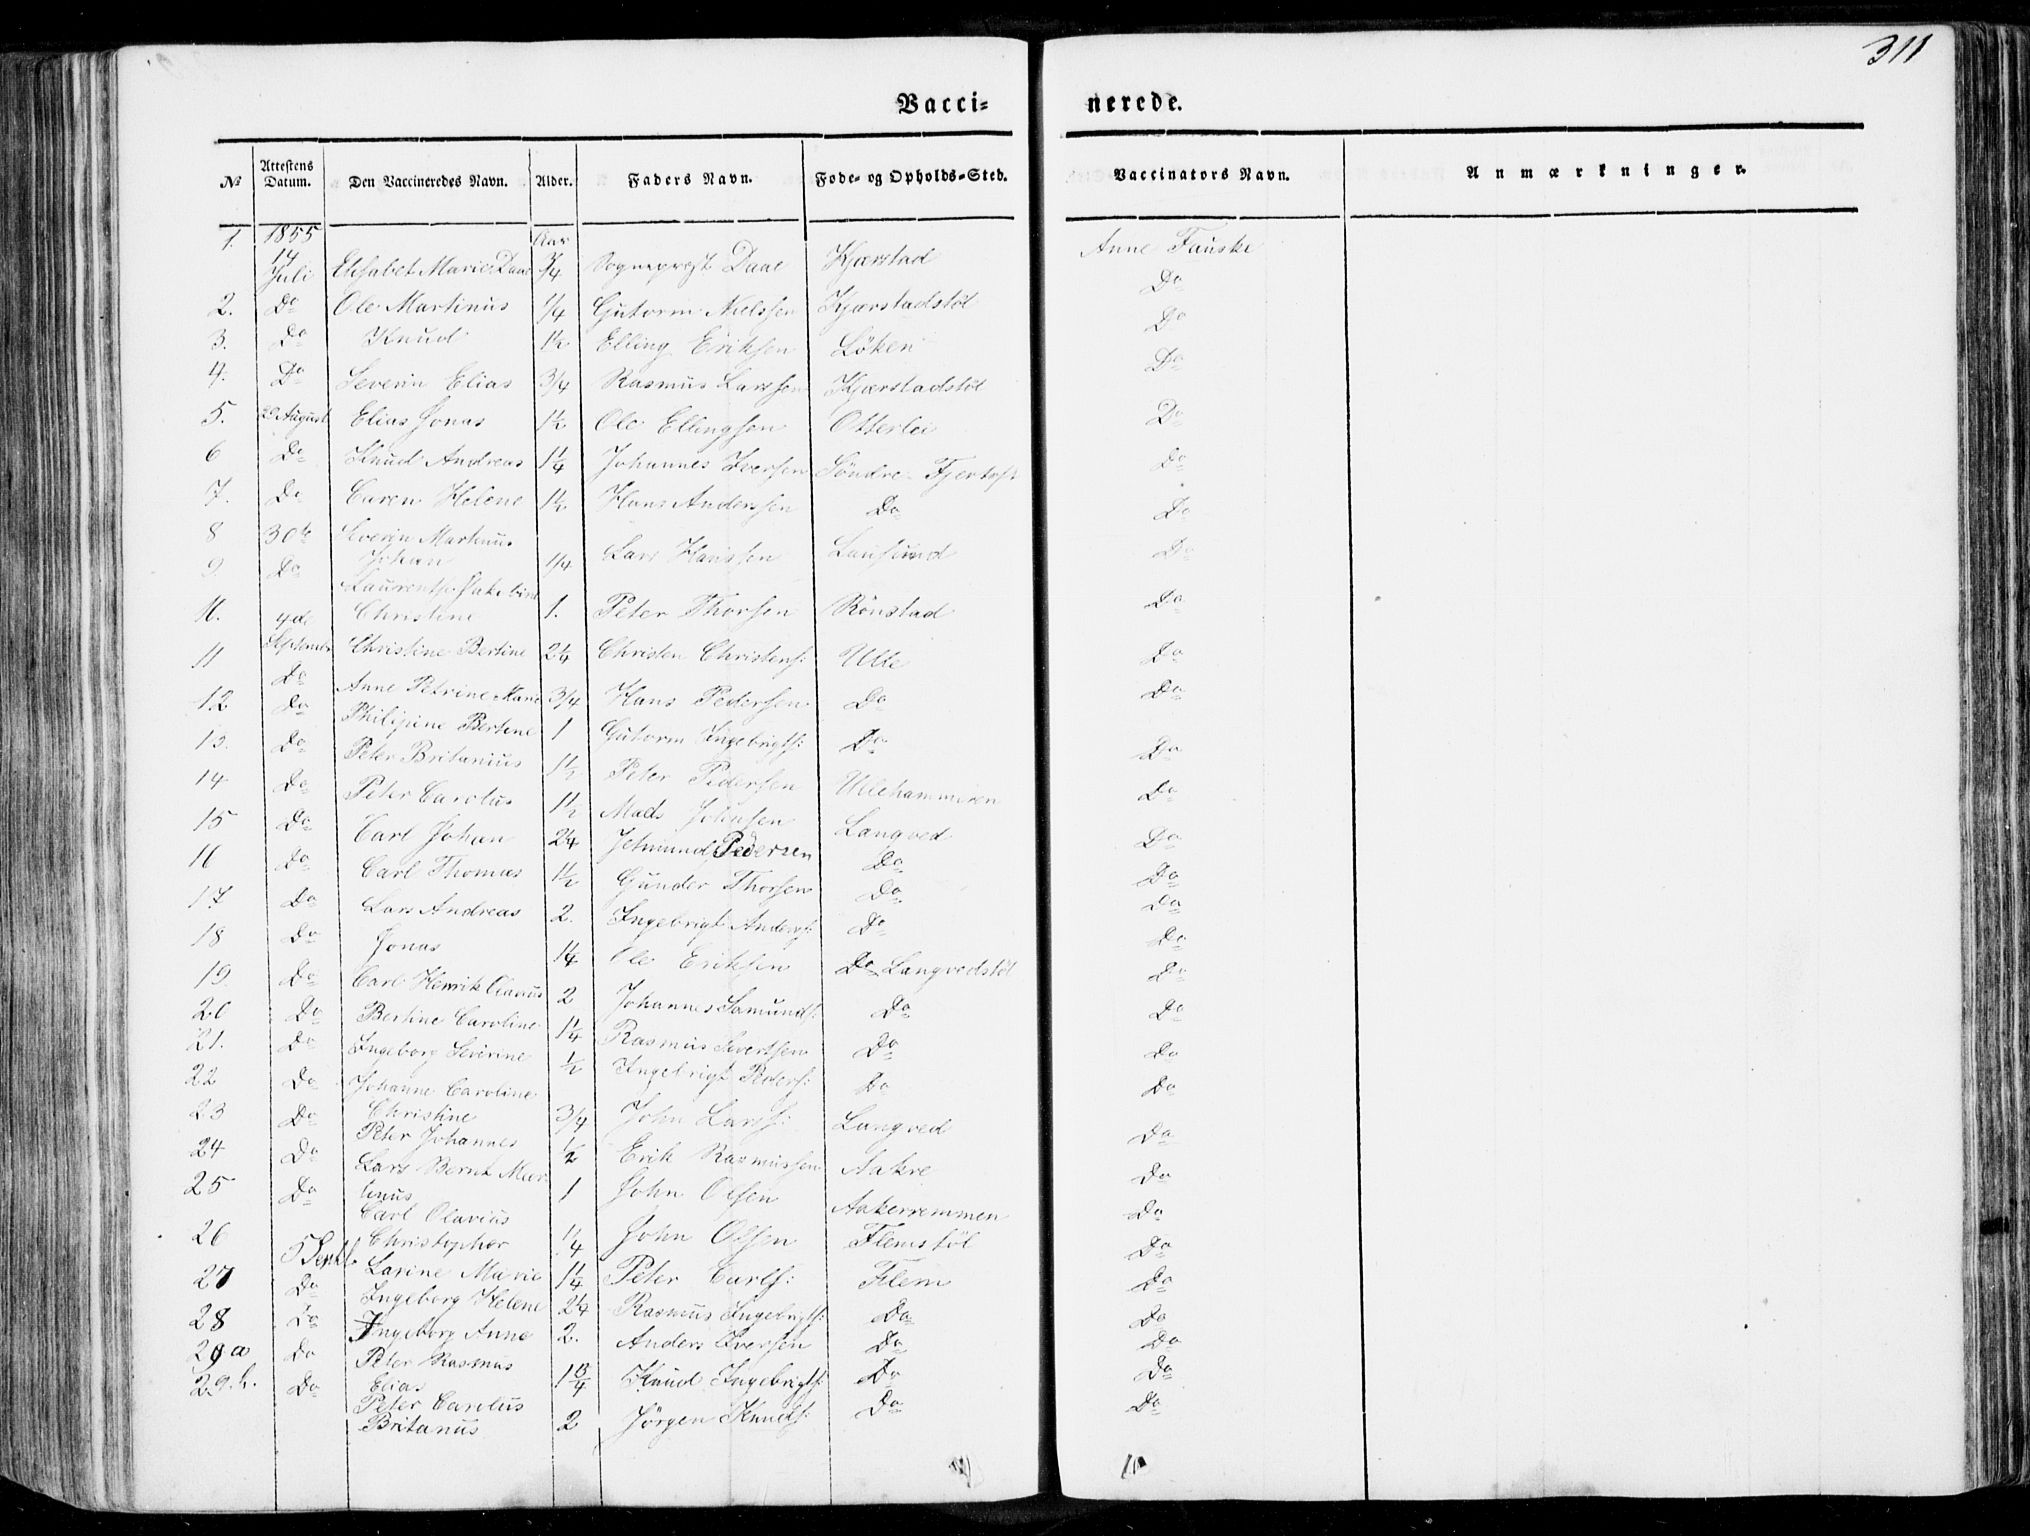 311
Vacci- nerede.
No Attestens Datum. Den Vaccineredes Navn. Alder. Faders Navn. Føde- og Opholds-Sted. Vaccinators Navn. Anmærkninger.
1. 1855 Aar
14 Juli Elisabet Marie Daae 3/4 Sogneprest Daae Kjærstad Anne Fauske
2. Do Ole Martinus 1/4 Gutorm Nielssen Kjærstadstøl Do
3. Do Knud 1½ Elling Eriksen Løken Do
4. Do Severin Elias 3/4 Rasmus Larssen Kjærstadstøl Do
5. August Elias Jonas 1½ Ole Ellingsen Otterlei Do
6 Do Knud Andreas 1¼ Johannes Iversen Söndre Fjertoft Do
7. Do Caren Helene 1½ Hans Anderssen Do Do
8 30te Severin Martinus
Johan 1/4 Lars Hanssen Lausund Do
9. Do Laurentse
Christine 1. Peter Thorsen Rönstad Do
11. 4de
September Christine Bertine 2¼ Christen Christens: Ulle Do
11 Do Anne Petrine Marie 3/4 Hans Pedersen Do Do
12 Do Philipine Bertine 1 Gutorm Ingebrigts: Do Do
13. Do Peter Britanius 1½ Peter Pedersen Ullehammeren Do
14 Do Peter Carolus 1½ Mads Johnsen Langved Do
15 Do Carl Johan 2¼ Jetmund Pedersen Do Do
16 Do Carl Thomas 1½ Gunder Thorsen Do Do
17 Do Lars Andreas 2. Ingebrigt Anders: Do Do
18 Do Jonas 1¼ Ole Eriksen Do Langvedstøl Do
19. Do Carl Henrik Olavus 2 Johannes Samunds: Do Do
20 Do Bertine Caroline 1¼ Rasmus Sivertsen Do Do
21. Do Ingeborg Severine ½ Ingebrigt Peders: Do Do
22 Do Johanne Caroline
Christine 3/4 John Larss: Langved Do
23 Do Peter Johannes ½ Erik Rasmussen Aakre Do
24 Do Lars Bernt Mar
tinus 1 John Olsen Aakerremmen Do
25 Do Carl Olavius
Christopher ¼ John Olsen Flemstøl Do
26 5 Septbr Larine Marie 1¼ Peter Carls: Flem Do
27 Do Ingeborg Helene 2¼ Rasmus Ingebrigts: Do Do
28 Do Ingeborg Anne 2. Anders Iversen Do Do
29a Do Peter Rasmus
Elias 1¾ Knud Ingebrigts: Do Do
29.b. Do Peter Carolus
Britanus 2 Jørgen Knuds: Do Do